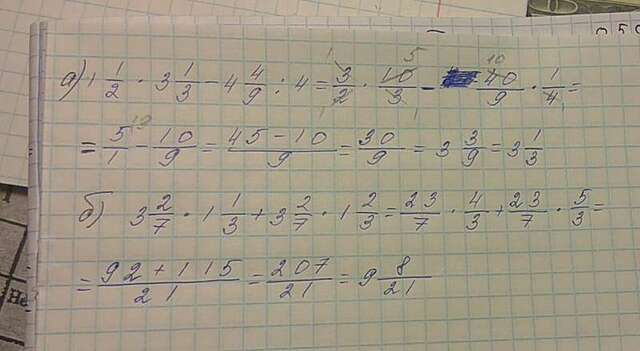 а) 1 1/2 · 3 1/3 - 4 4/9 : 4 = 3/2 · 10/3 - 40/9 · 1/4 =
= 5/1 - 10/9 = 45-10/9 = 30/9 = 3 3/9 = 3 1/3
б) 3 2/7 · 1 1/3 + 3 2/7 · 1 2/3 = 23/7 · 4/3 + 23/7 · 5/3 =
= 92+115/21 = 207/21 = 9 8/21